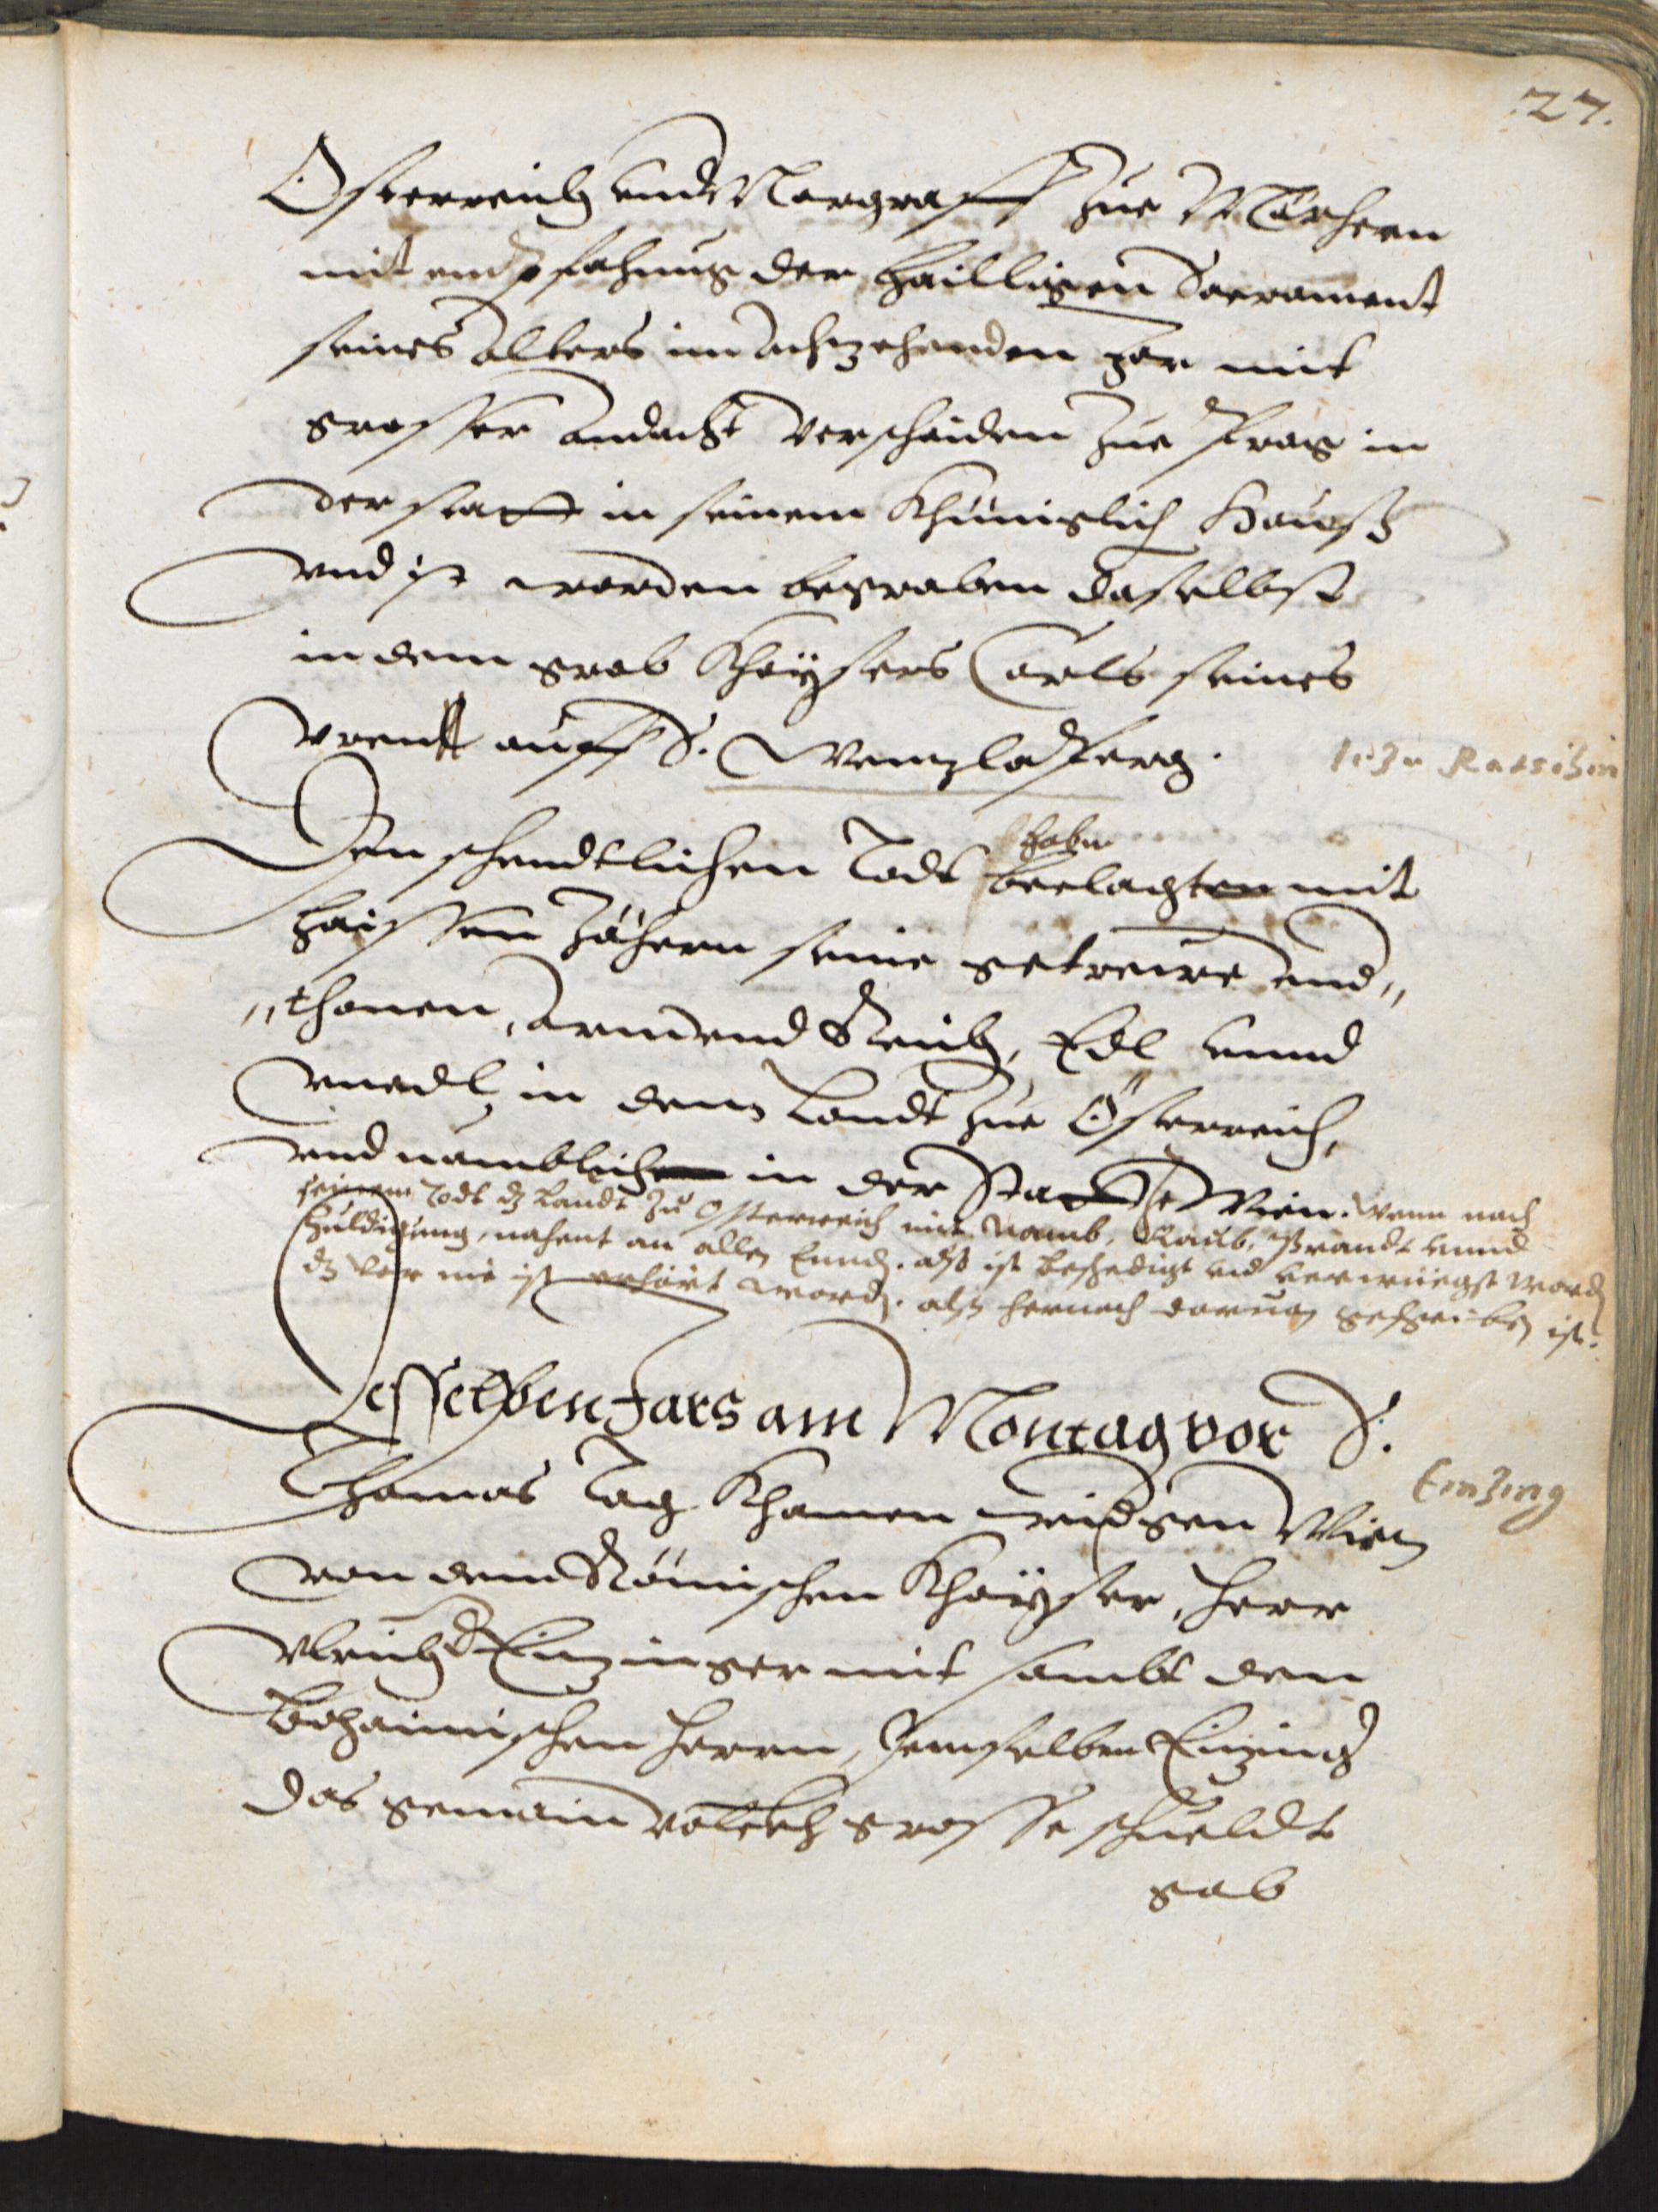 27.
Österreich vnd Margraff zue Märhern
mit endpfahung der hailligen Sacrament
seines alters im achzehenden Jar mit
grosser andacht verschaiden zue Prag in
der statt in seinem Khüniglich Hauß
vnd ist worden begraben daselbst
in dem grab Khaÿsers Carls seines
auff S. Wenzlasperg.
Den schendtlichen Todt beclagten mit
haben
haissen Zähern seine getreüe vnd„
„thonen, Arm vnd Reich, Edl vnnd
vnedl, in dem Landt zue Österreich,
vnd nemblichen in der Statt Wien. wenn nach
seinem Todt dz Landt zu Österreich mit Namb, Raub, Prandt vnnd
Huldigung, nahent an allen Ennden. alß ist beschedigt vnd verwüegst worden
dz vor nie ist erhört worden. alß hernach daruon geschriben ist.
Desselben Jars am Montag vor S.
Einzing
Thomas Tag Khamen gen Wien
von dem Römischen Khaÿser, Herr
Vlrich Einzinger mit sambt den
Behaimischen Herrn, demselben Einzing
das gemain volckh grosse schueldt
gab